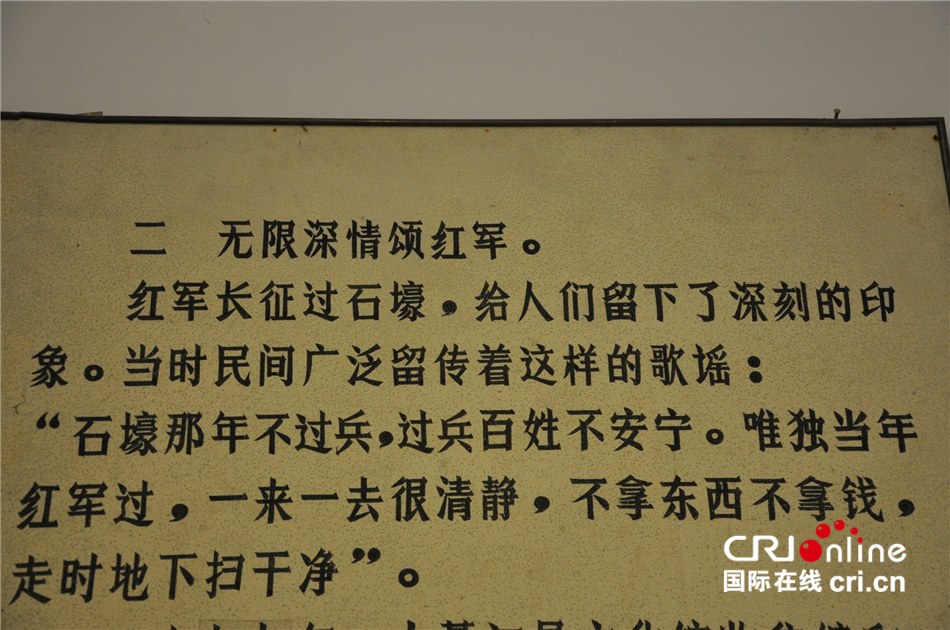 二 无限深情颂红军。
红军长征过石壕，给人们留下了深刻的印
象。当时民间广泛留传着这样的歌谣：
“石壕那年不过兵，过兵百姓不安宁。唯独当年
红军过，一来一去很清静，不拿东西不拿钱，
走时地下扫干净”。
CRIonline
国际在线 cri.cn